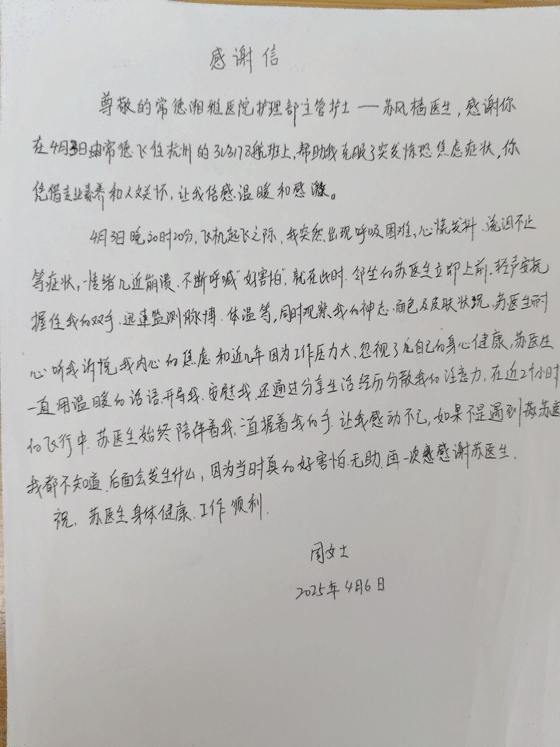 感谢信
尊敬的常德湘雅医院护理部主管护士——苏风橘医生，感谢你
在4月3日由常德飞往杭州的3U3178航班上，帮助我克服了突发惊恐焦虑症状，你
凭借专业素养和人文关怀，让我倍感温暖和感激。
4月3日晚20时20分，飞机起飞之际，我突然出现呼吸困难，心慌发抖、流泪不止
等症状，情绪几近崩溃、不断呼喊“好害怕”就在此时、邻坐的苏医生立即上前，轻声安抚
握住我的双手、迅速监测脉搏、体温等，同时观察我的神志、面色及皮肤状况，苏医生耐
心听我诉说我内心的焦虑和近几年因为工作压力大、忽视了自己的身心健康，苏医生
一直用温暖的话语开导我、安慰我，还通过分享生活经历分散我的注意力，在近2个小时
的飞行中、苏医生始终陪伴着我、一直握着我的手、让我感动不已，如果不是遇到苏医
我都不知道后面会发生什么，因为当时真的好害怕、无助、再一次感谢苏医生．
祝，苏医生身体健康、工作顺利．
周女士
2025年4月6日